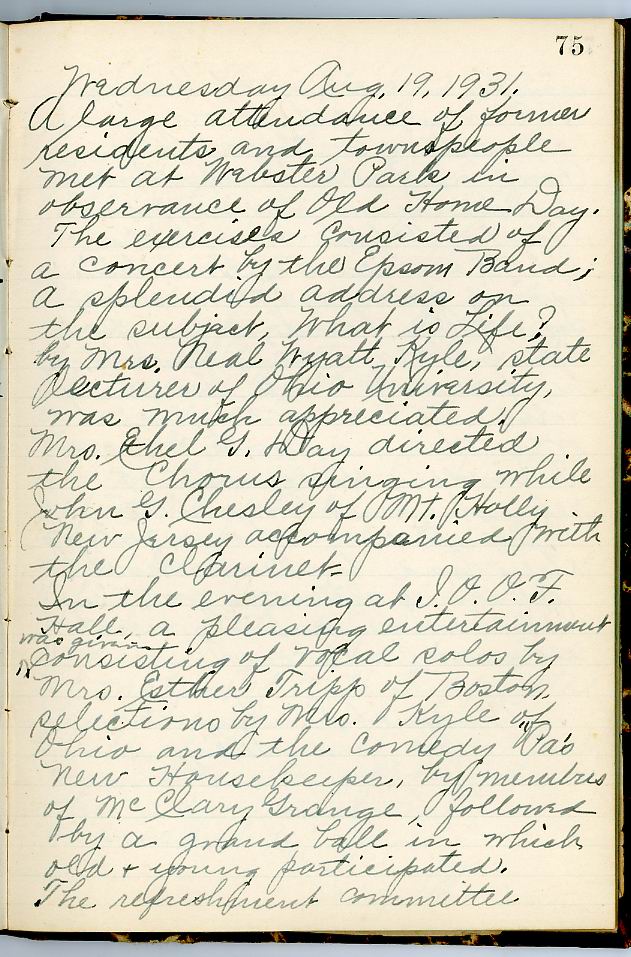 75
Wednesday Aug, 19, 1931.
A large attendance of former
residents and townspeople
met at Webster Park in
observance of Old Home Day.
The exercises consisted of
a concert by the Epsom Band;
a splendid address on
the subject, What is Life?
by Mrs. Neal Wyatt Kyle, state
lecturer of Ohio University,
was much appreciated.
Mrs. Ethel G. Day directed
the Chorus singing while
John G. Chesley of Mt. Holly
New Jersey accompanied with
the Clarinet.
In the evening at I. O. O. F.
Hall, a pleasing entertainment
was given
consisting of vocal solos by
Mrs. Esther Tripp of Boston,
selections by Mrs. Kyle of
Ohio and the comedy "Pa's
New Housekeeper, by members
of McClary Grange, followed
by a grand ball in which
old + young participated.
The refreshment committee